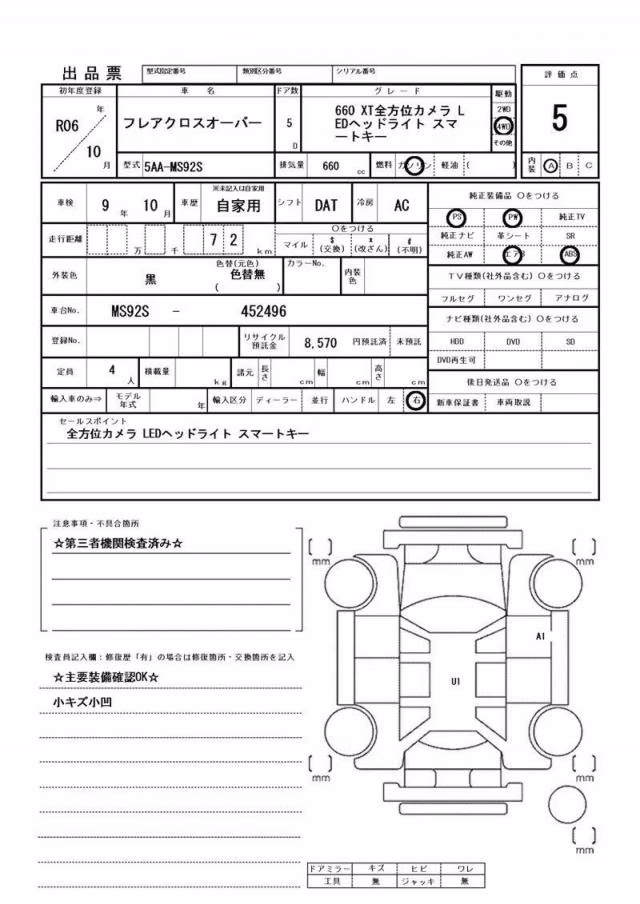 出品票
型式指定番号
類別区分番号
シリアル番号
評価点
初年度登録
車名
ドア数
グレード
駆動
R06
年
10
月
フレアクロスオーバー
5
D
660 XT全方位カメラ L
EDヘッドライト スマ
ートキー
2WD
4WD
その他
5
型式
5AA-MS92S
排気量
660
cc
燃料
ガソリン
軽油
(
)
内装
A
B
C
車検
9
年
10
月
車歴
※未記入は自家用
自家用
シフト
DAT
冷房
AC
純正装備品 〇をつける
PS
PW
純正TV
走行距離
万
千
7 2
km
〇をつける
マイル
$
(交換)
*
(改ざん)
#
(不明)
純正ナビ
革シート
SR
純正AW
エアB
ABS
外装色
黒
色替(元色)
色替無
(
)
カラーNo.
内装色
TV種類(社外品含む) 〇をつける
フルセグ
ワンセグ
アナログ
車台No.
MS92S
-
452496
ナビ種類(社外品含む) 〇をつける
登録No.
リサイクル
預託金
8,570
円預託済
未預託
HDD
DVD
SD
DVD再生可
定員
4
人
積載量
kg
諸元
長さ
cm
幅
cm
高さ
cm
後日発送品 〇をつける
輸入車のみ⇒
モデル
年式
年
輸入区分
ディーラー
並行
ハンドル
左
右
新車保証書
車両取説
セールスポイント
全方位カメラ LEDヘッドライト スマートキー
注意事項・不具合箇所
☆第三者機関検査済み☆
検査員記入欄：修復歴「有」の場合は修復箇所・交換箇所を記入
☆主要装備確認OK☆
小キズ小凹
mm
mm
A1
U1
mm
mm
mm
ドアミラー
キズ
ヒビ
ワレ
工具
無
ジャッキ
無